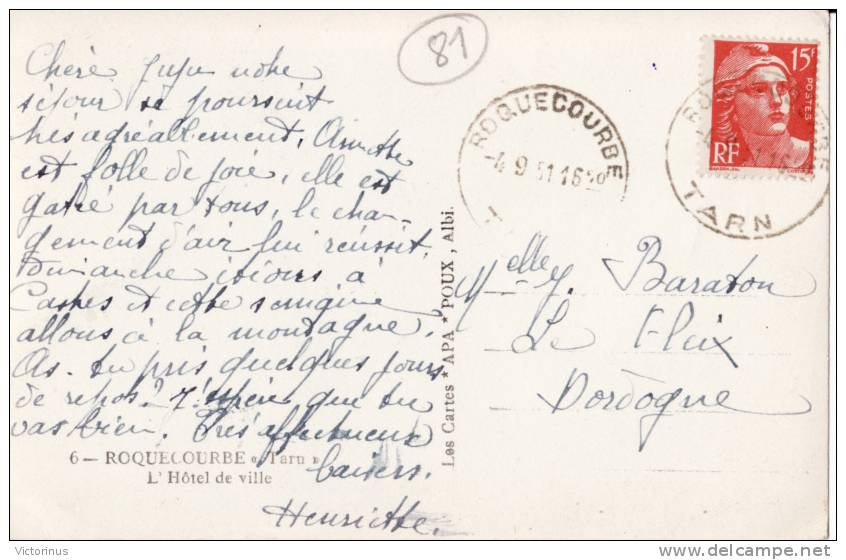 81
Chère Juju notre
séjour se poursuit
très agréablement. Annette
est folle de joie, elle est
gatée par tous, le chan-
gement d'air lui réussit.
Dimanche irons à
Castres et cette semaine
allons à la montagne.
As-tu pris quelques jours
de repos? J'espère que tu
vas bien. Très affectueux
baisers.
Henriette.
6 — ROQUECOURBE « Tarn »
L'Hôtel de ville
Les Cartes * APA * POUX, Albi.
ROQUECOURBE
-4 9 51 16
15F
POSTES
RF
TARN
Melle J. Baraton
Le Fleix
Dordogne
Victorinus
delcampe.net